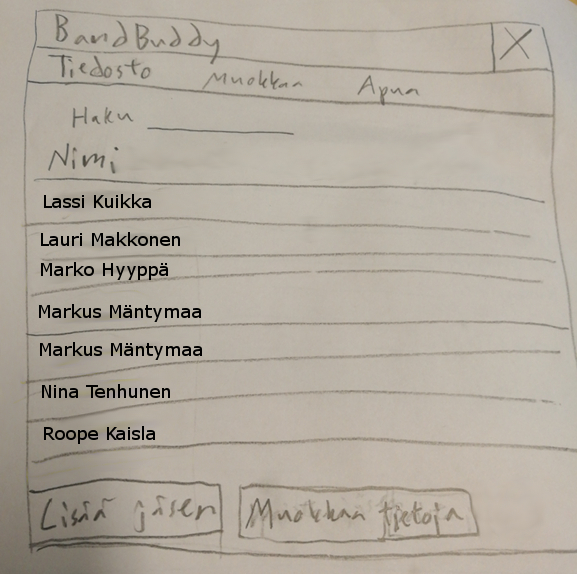 BandBuddy X
Tiedosto Muokkaa Apua
Haku
Nimi
Lassi Kuikka
Lauri Makkonen
Marko Hyyppä
Markus Mäntymaa
Markus Mäntymaa
Nina Tenhunen
Roope Kaisla
Lisää jäsen Muokkaa tietoja